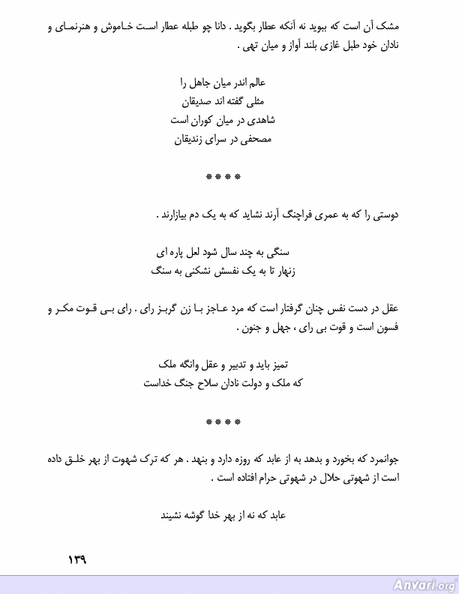 مشک آن است که ببوید نه آنکه عطار بگوید . دانا چو طبله عطار است خاموش و هنرنمای و
نادان خود طبل غازی بلند آواز و میان تهی .
عالم اندر میان جاهل را
مثلی گفته اند صدیقان
شاهدی در میان کوران است
مصحفی در سرای زندیقان
* * * *
دوستی را که به عمری فراچنگ آرند نشاید که به یک دم بیازارند .
سنگی به چند سال شود لعل پاره ای
زنهار تا به یک نفسش نشکنی به سنگ
عقل در دست نفس چنان گرفتار است که مرد عاجز با زن گربز رای . رای بی قوت مکر و
فسون است و قوت بی رای ، جهل و جنون .
تمیز باید و تدبیر و عقل وانگه ملک
که ملک و دولت نادان سلاح جنگ خداست
* * * *
جوانمرد که بخورد و بدهد به از عابد که روزه دارد و بنهد . هر که ترک شهوت از بهر خلق داده
است از شهوتی حلال در شهوتی حرام افتاده است .
عابد که نه از بهر خدا گوشه نشیند
۱۳۹
Anvari.org